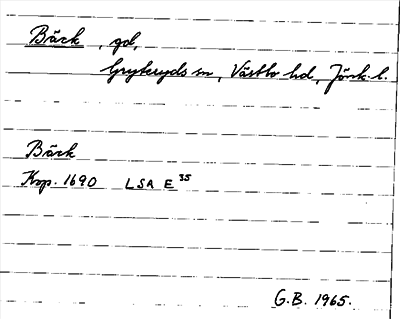 Bäck, gd,
Gryteryds sn, Västbo hd, Jönk. l.
Bäck
Krp. 1690 LSA E 35
G.B. 1965.